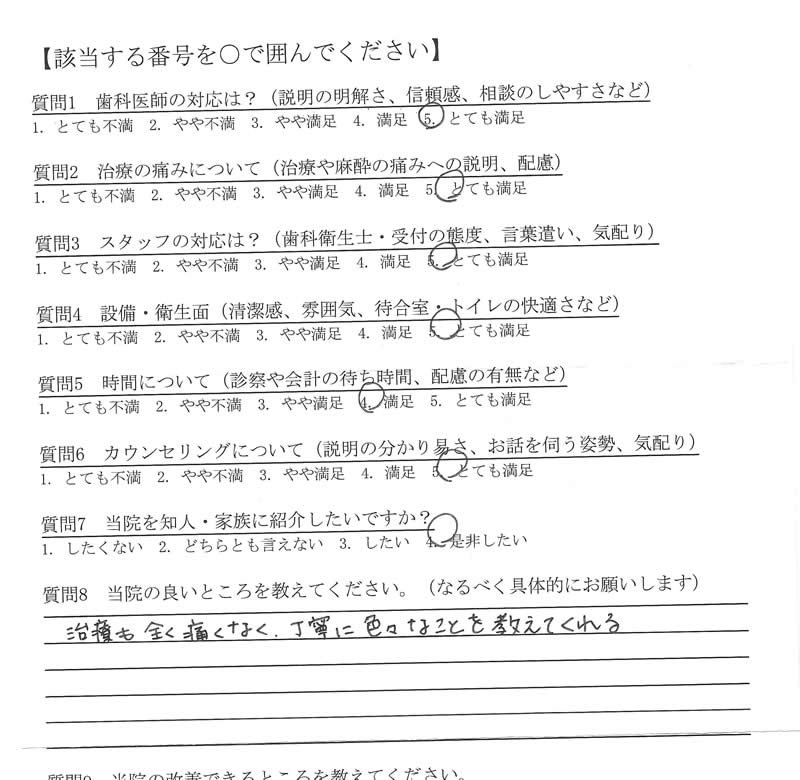 【該当する番号を○で囲んでください】
質問1　歯科医師の対応は？（説明の明解さ、信頼感、相談のしやすさなど）
1. とても不満　2. やや不満　3. やや満足　4. 満足　5. とても満足
質問2　治療の痛みについて（治療や麻酔の痛みへの説明、配慮）
1. とても不満　2. やや不満　3. やや満足　4. 満足　5. とても満足
質問3　スタッフの対応は？（歯科衛生士・受付の態度、言葉遣い、気配り）
1. とても不満　2. やや不満　3. やや満足　4. 満足　5. とても満足
質問4　設備・衛生面（清潔感、雰囲気、待合室・トイレの快適さなど）
1. とても不満　2. やや不満　3. やや満足　4. 満足　5. とても満足
質問5　時間について（診察や会計の待ち時間、配慮の有無など）
1. とても不満　2. やや不満　3. やや満足　4. 満足　5. とても満足
質問6　カウンセリングについて（説明の分かり易さ、お話を伺う姿勢、気配り）
1. とても不満　2. やや不満　3. やや満足　4. 満足　5. とても満足
質問7　当院を知人・家族に紹介したいですか？
1. したくない　2. どちらとも言えない　3. したい　4. 是非したい
質問8　当院の良いところを教えてください。（なるべく具体的にお願いします）
治療も全く痛くなく、丁寧に色々なことを教えてくれる
質問9　当院の改善できるところを教えてください。